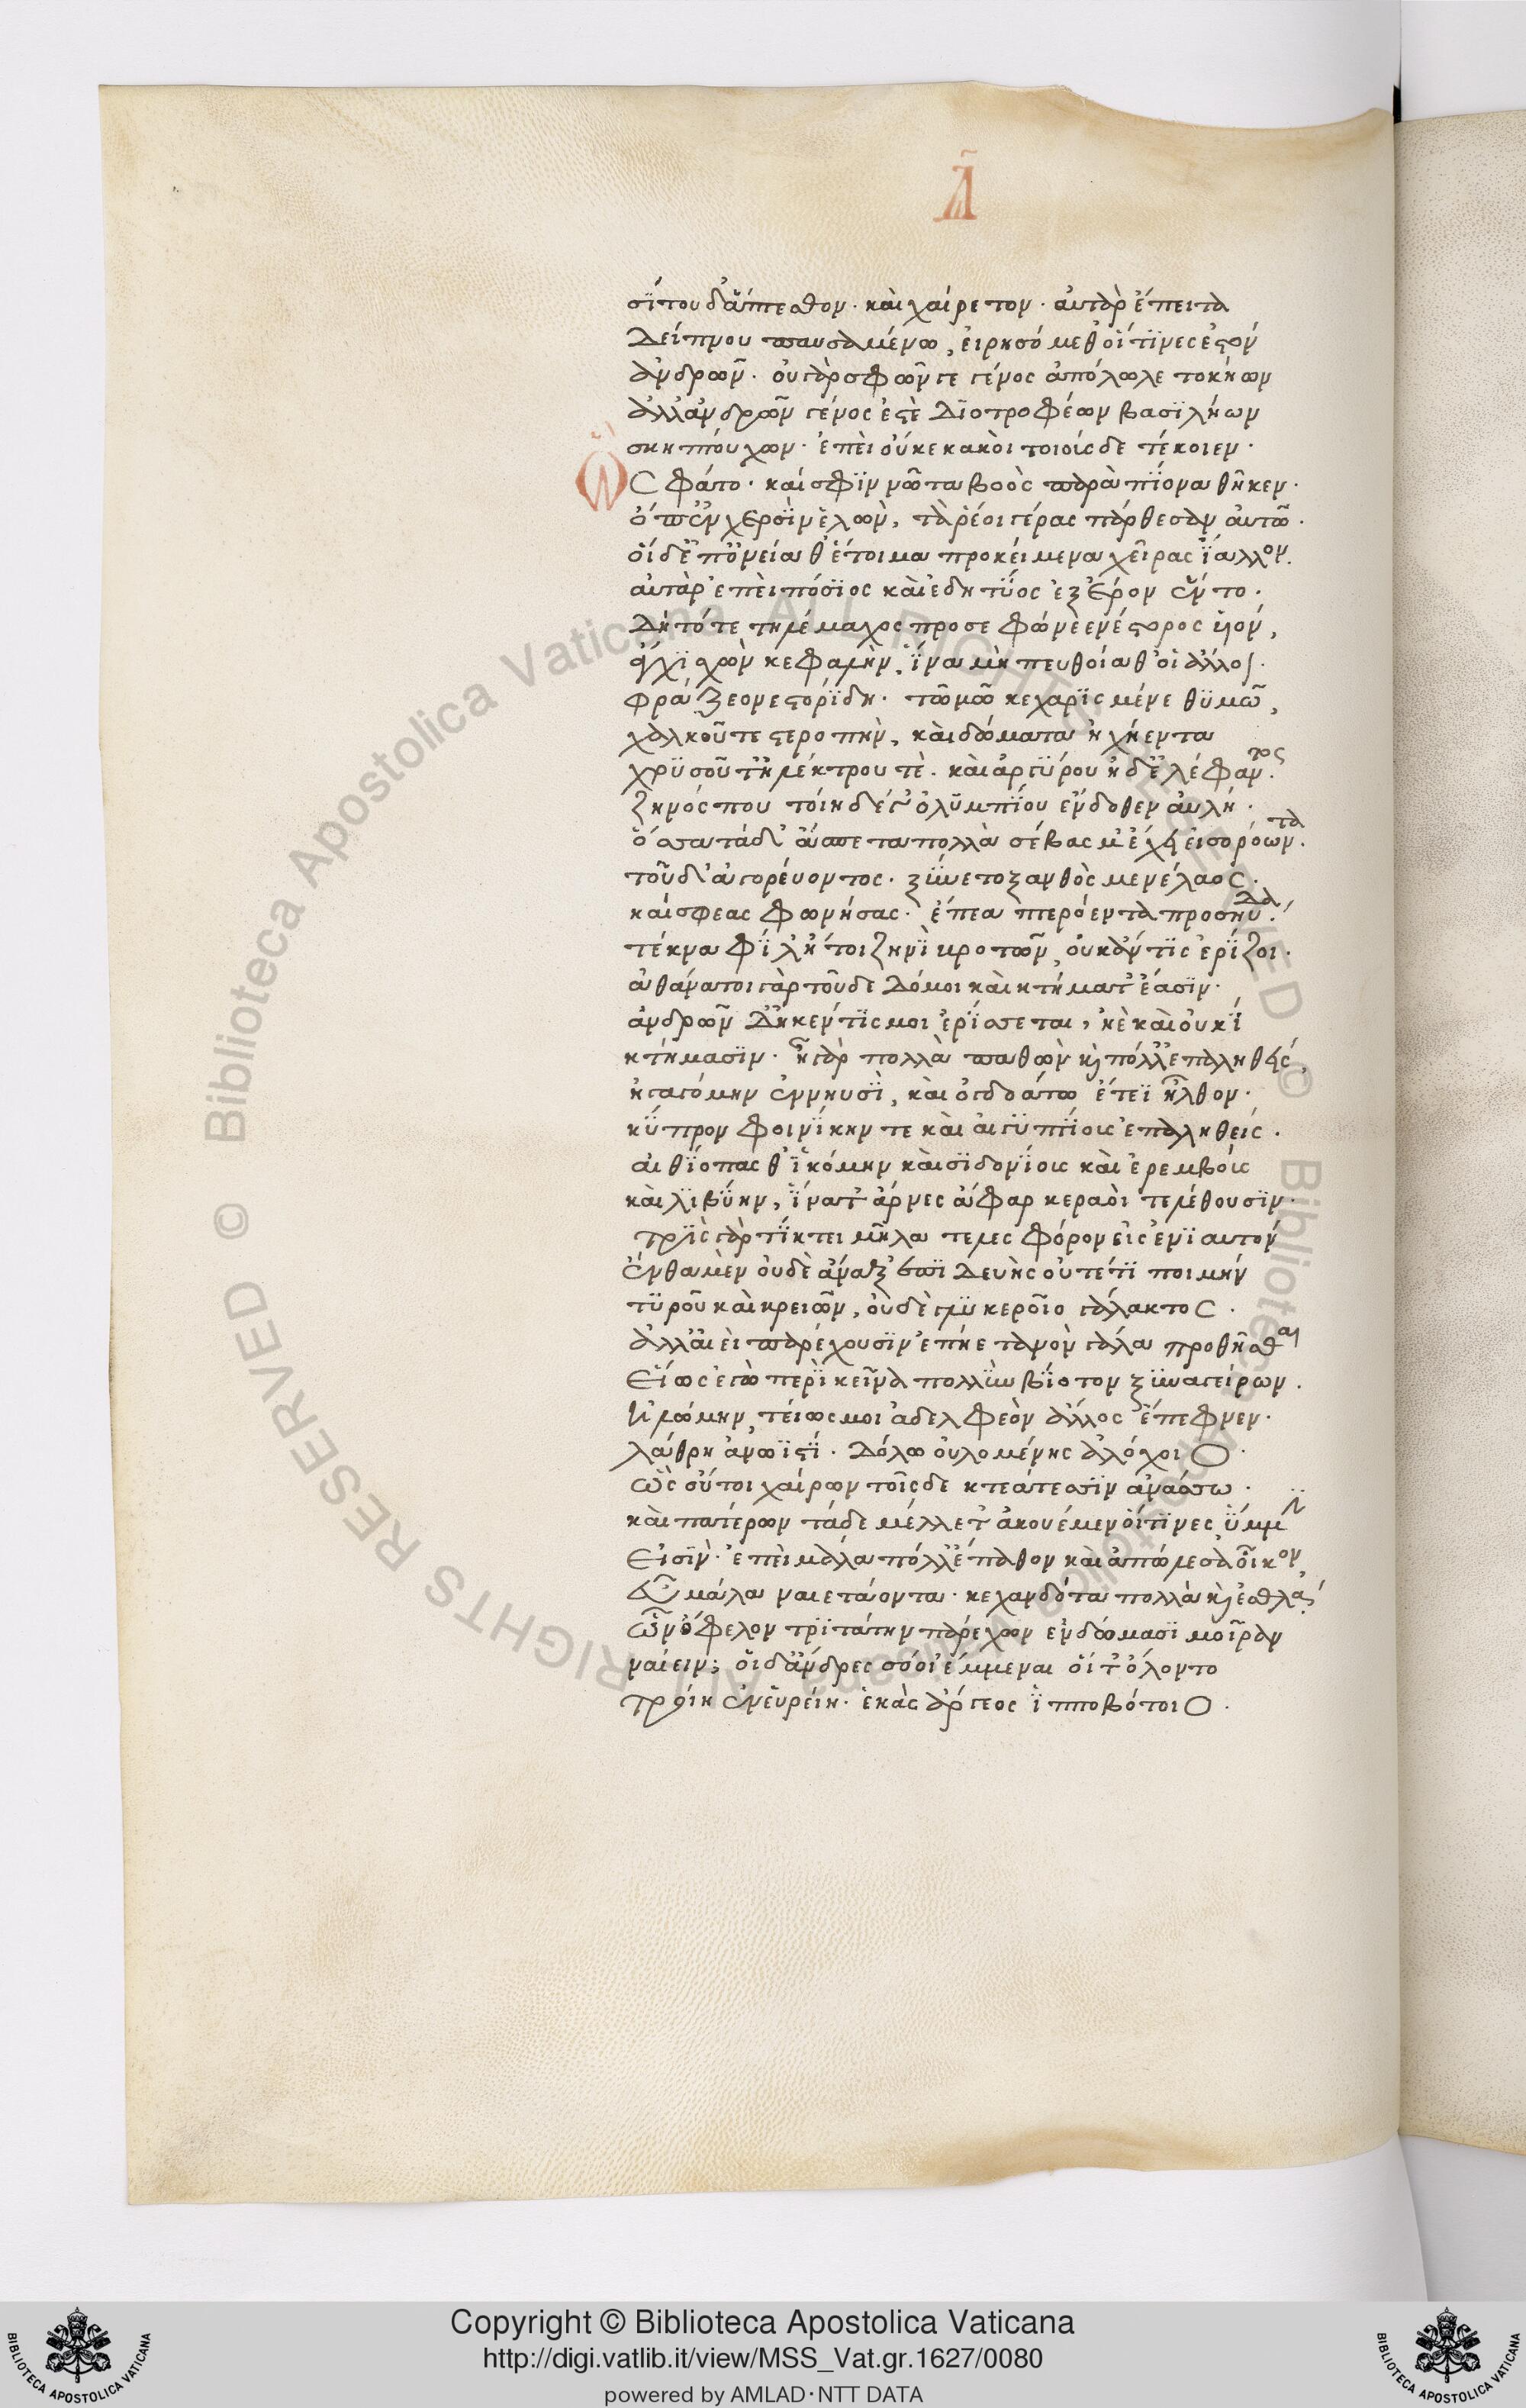 Δ
σίτου δ' ἅπτεσθον· καὶ χαίρετον· αὐτὰρ ἔπειτα
δείπνου παυσαμένω, εἰρησόμεθ' οἵτινες ἐστόν
ἀνδρῶν· οὐ γὰρ σφῶν γε γένος ἀπόλωλε τοκήων
ἀλλ' ἀνδρῶν γένος ἐστὲ διοτροφέων βασιλήων
σκηπτούχων· ἐπεὶ οὔ κε κακοὶ τοιούσδε τέκοιεν·
Ὣς φάτο· καί σφιν νῶτα βοὸς παρὰ πίονα θῆκεν·
ὄπτ' ἐν χερσὶν ἑλών, τά ῥά οἱ γέρας πάρθεσαν αὐτῶ·
οἱ δ' ἐπ' ὀνείαθ' ἑτοῖμα προκείμενα χεῖρας ἴαλλον.
αὐτὰρ ἐπεὶ πόσιος καὶ ἐδητύος ἐξ ἔρον ἕντο·
δὴ τότε τηλέμαχος προσεφώνεε νέστορος υἱόν,
ἄγχι σχὼν κεφαλήν, ἵνα μὴ πευθοίαθ' οἱ ἄλλοι.
φράζεο νεστορίδη· τῶ 'μῶ κεχαρισμένε θυμῶ,
χαλκοῦ τε στεροπήν, καὶ δώματα ἠχήεντα
χρυσοῦ τ' ἠλέκτρου τὲ· καὶ ἀργύρου ἠδ' ἐλέφαντος.
ζηνός που τοίηδέ γ' ὀλυμπίου ἔνδοθεν αὐλή·
ὅσσα τάδ' ἄσπετα πολλὰ σέβας μ' ἔχει εἰσορόωντα.
τοῦ δ' ἀγορεύοντος· ξύνετο ξανθὸς μενέλαος·
καί σφεας φωνήσας· ἔπεα πτερόεντα προσηύδα.
τέκνα φίλ' ἤτοι ζηνὶ βροτῶν, οὐκ ἄν τις ἐρίζοι·
ἀθάνατοι γὰρ τοῦδε δόμοι καὶ κτήματ' ἔασιν·
ἀνδρῶν δ' ἤ κέν τίς μοι ἐρίσσεται, ἠὲ καὶ οὐκί
κτήμασιν· ἦ γὰρ πολλὰ παθὼν κ πόλλ' ἐπαληθείς,
ἠγαγόμην ἐν νηυσὶ, καὶ ὀγδοάτω ἔτεϊ ἦλθον·
κύπρον φοινίκην τε καὶ αἰγυπτίους ἐπαληθείς·
αἰθίοπάς θ' ἱκόμην καὶ σιδονίους καὶ ἐρεμβούς
καὶ λιβύην, ἵνα τ' ἄρνες ἄφαρ κεραοὶ τελέθουσιν·
τρὶς γὰρ τίκτει μῆλα τελεσφόρον εἰς ἐνιαυτόν
ἔνθα μὲν οὐδὲ ἄναξ ἐπιδευὴς οὔτέ τι ποιμήν
τυροῦ καὶ κρειῶν, οὐδὲ γλυκεροῖο γάλακτος·
ἀλλ' αἰεὶ παρέχουσιν ἐπηετανὸν γάλα προθῆσθαι
Εἵως ἐγὼ περὶ κεῖνα πολὺν βίοτον ξυναγείρων·
ἠλώμην, τείως μοι ἀδελφεὸν ἄλλος ἔπεφνεν·
λάθρη ἀνωϊστί· δόλω οὐλομένης ἀλόχοιο·
ὣς οὔτοι χαίρων τοῖσδε κτεάτεσσιν ἀνάσσω·
καὶ πατέρων τάδε μέλλετ' ἀκουέμεν οἵτινες ὕμμιν
Εἰσὶν· ἐπεὶ μάλα πόλλ' ἔπαθον καὶ ἀπώλεσα οἶκον
εὖ μάλα ναιετάοντα· κεχανδότα πολλὰ κ ἐσθλά
ὧν ὄφελον τριτάτην πὰρ ἔχων ἐν δώμασι μοῖραν
ναίειν; οἱ δ' ἄνδρες σόοι ἔμμεναι οἵ τ' ὄλοντο
τροίη ἐν εὐρείη· ἑκὰς ἄργεος ἱπποβότοιο·
Copyright © Biblioteca Apostolica Vaticana
http://digi.vatlib.it/view/MSS_Vat.gr.1627/0080
powered by AMLAD·NTT DATA